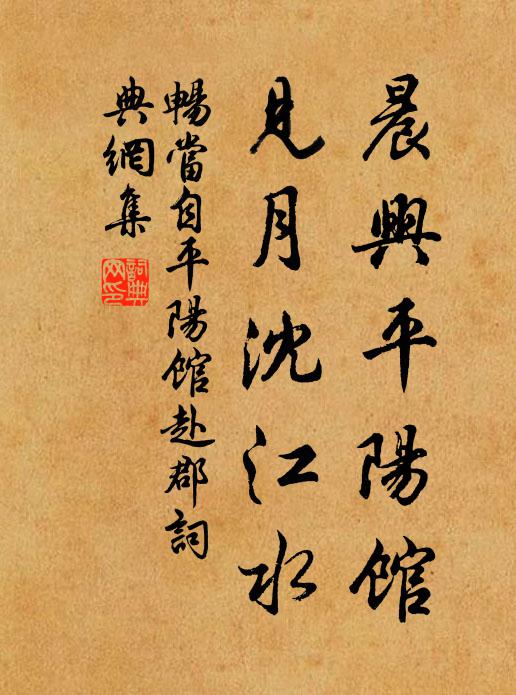 晨興平陽館
見月沈江水
暢當自平陽館赴郡詞
典網集
詞典
网印